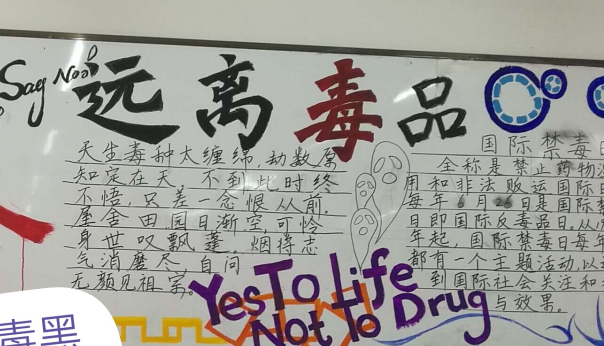 Say Noo!
远离毒品
天生毒种太缠绵,劫数原
知定在天 不到此时终
不悟,只差一念恨从前.
屋舍田园日渐空,可怜
身世叹飘蓬,烟将志
气消磨尽,自问
无颜见祖宗。
国际禁毒日
全称是禁止药物
用和非法贩运国际日
每年6月26是国际禁
日即国际反毒品日.从
年起,国际禁毒日每年
都有一个主题活动,以
到国际社会关注和
与效果。
Yes To Life
Not To Drug
毒黑